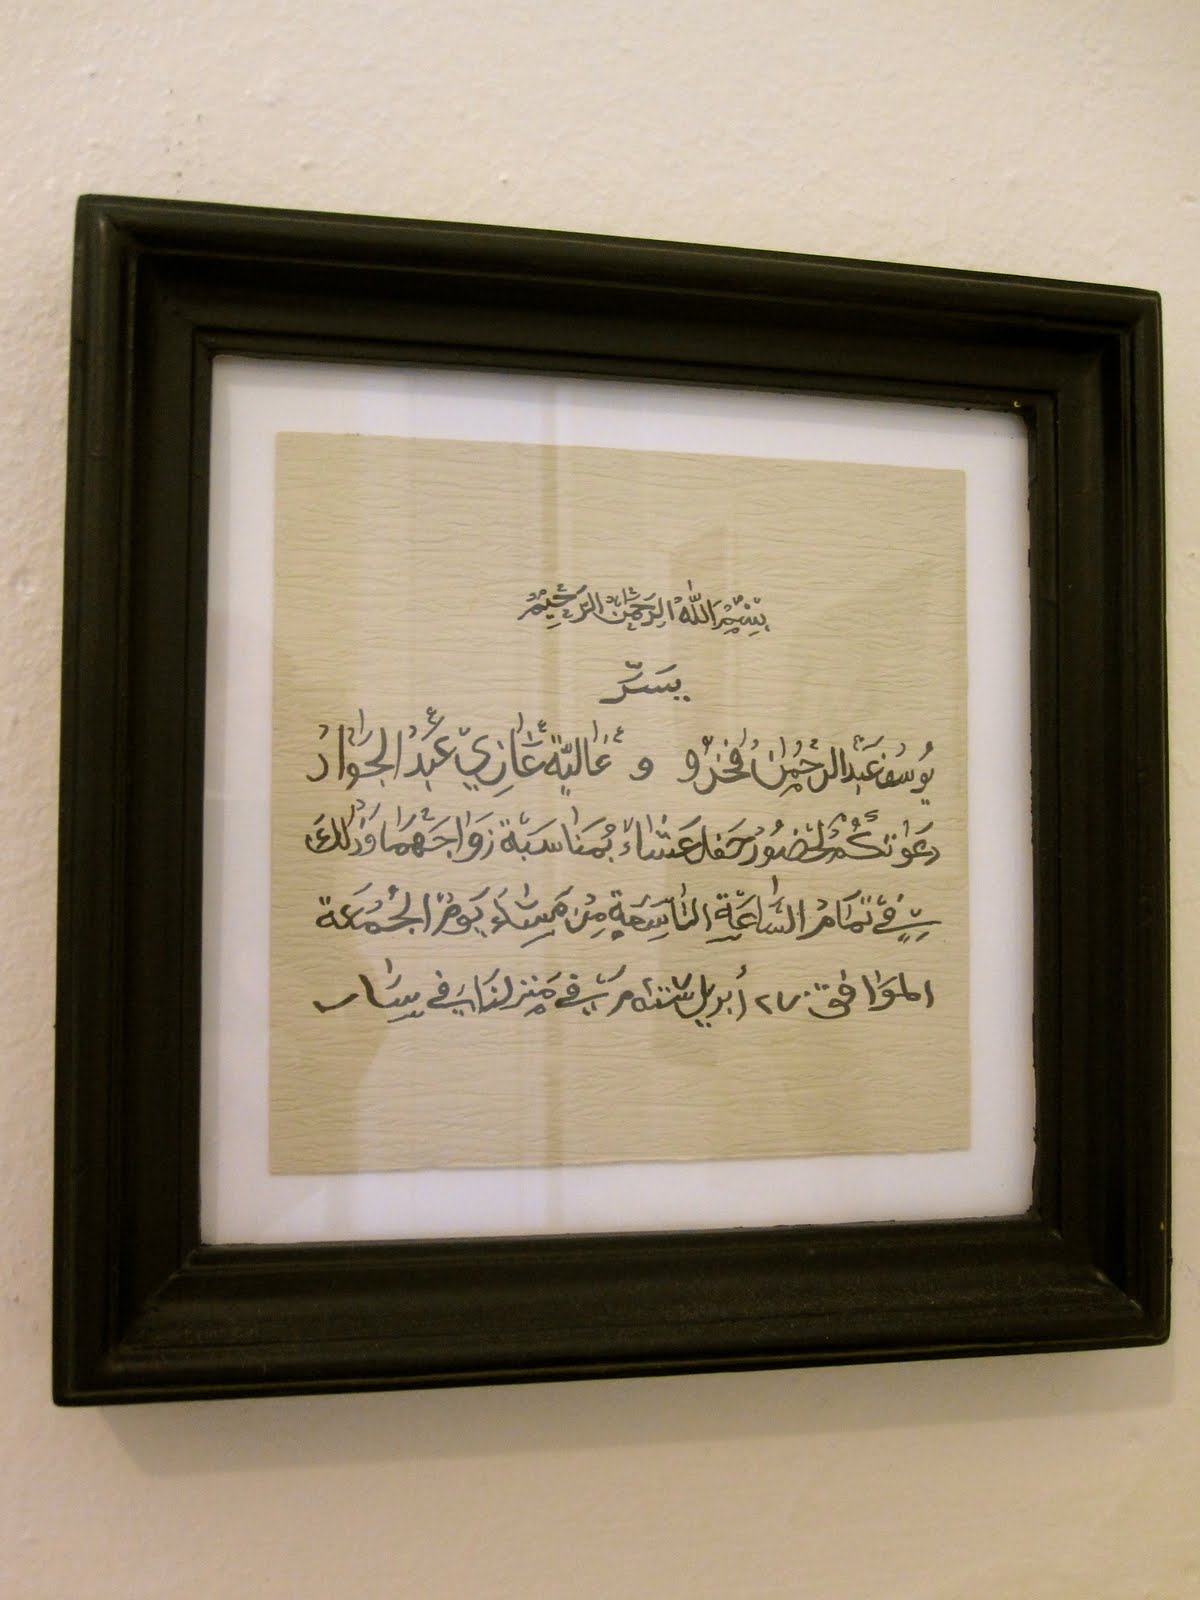 بِسْمِ اللّٰهِ الرَّحْمٰنِ الرَّحِيْمِ
يَسَرّ
يُوسُف عَبدالرحمٰن فَخرُو و غَالية غَازي عَبدالجَوَاد
دعَوتكُم لحضُور حَفل عَشَاء بمُنَاسَبَة زوَاجَهمَا وَذلكَ
في تمَام السَّاعَة التَاسِعَة مِن مَسَاء يَوم الجُمعَة
الموَافق ٢٧ أبريل سنة م في مَنزلنَا في سَار